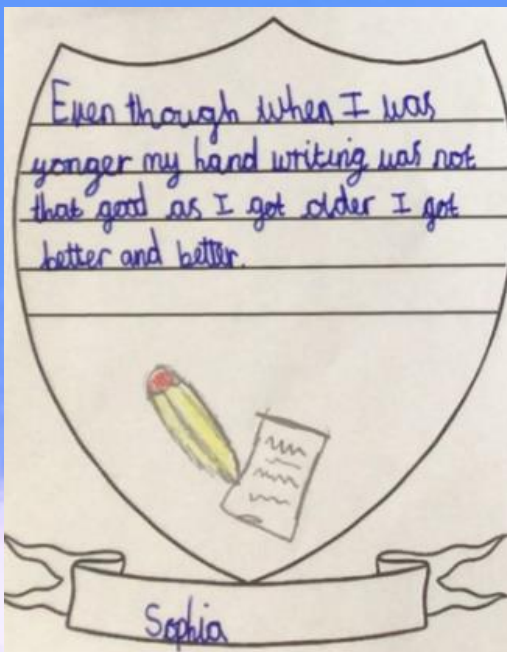 Even though when I was
yonger my hand writing was not
that good as I got older I got
better and better.
Sophia